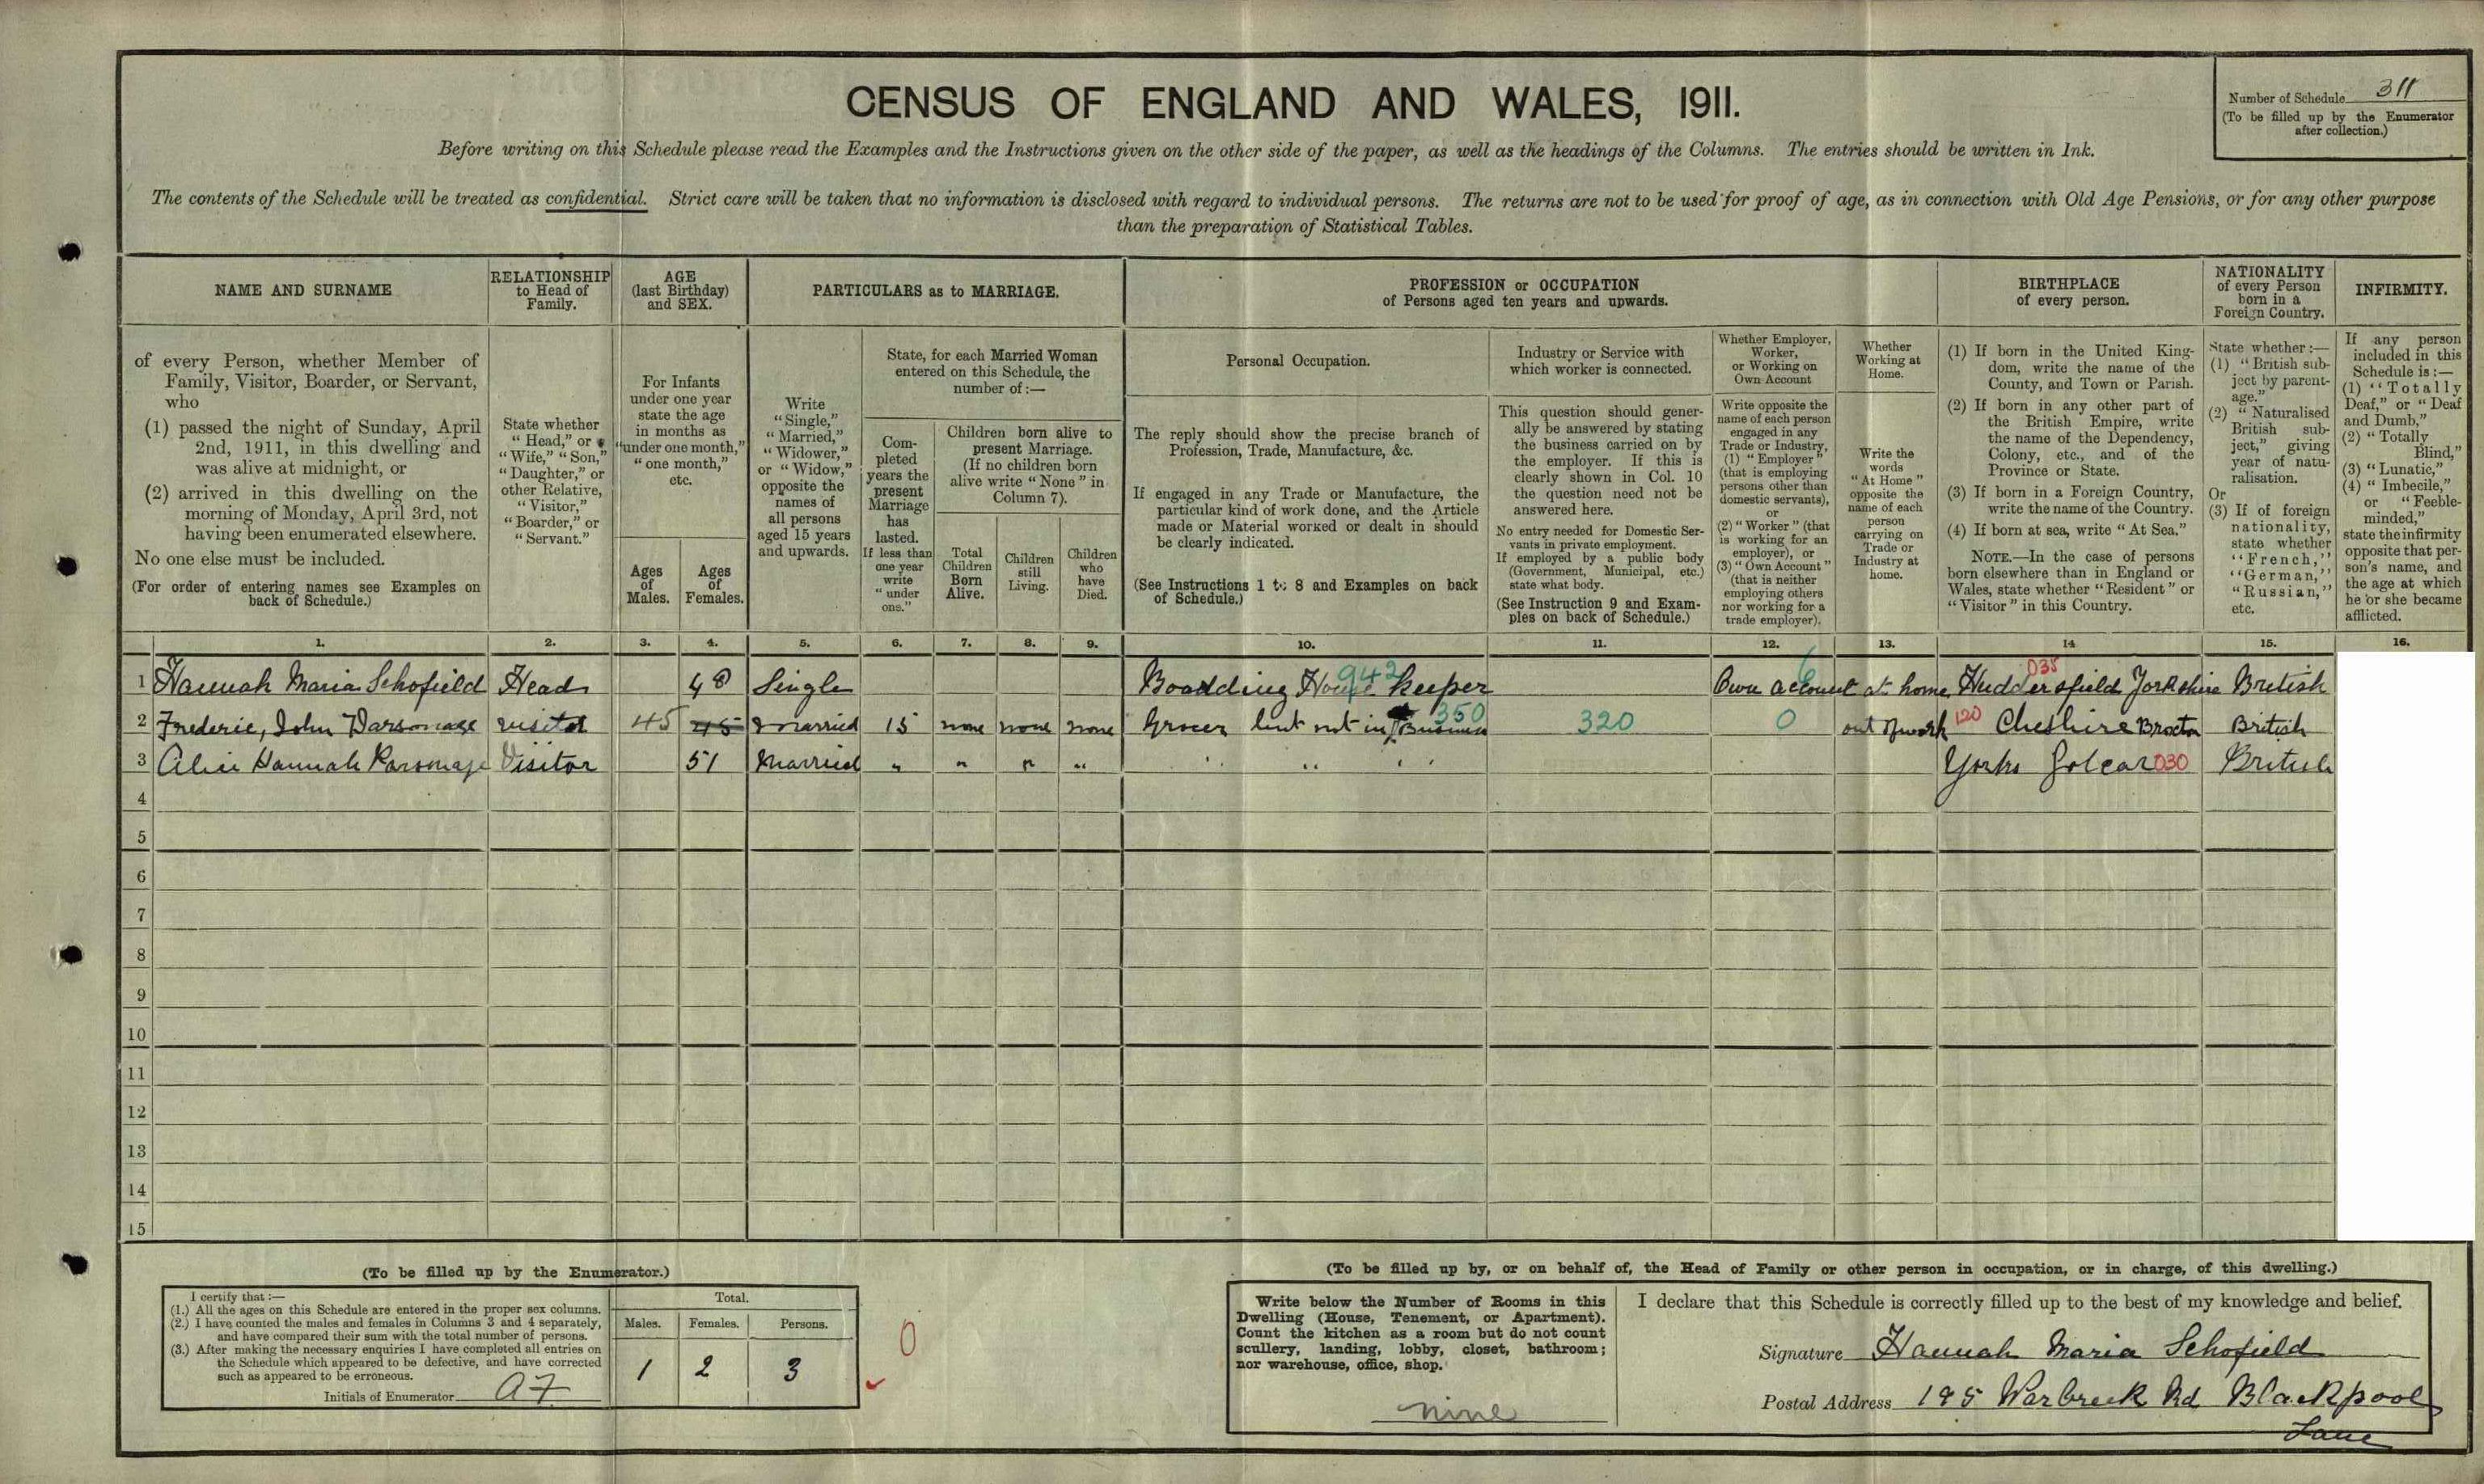 CENSUS OF ENGLAND AND WALES, 1911.
Number of Schedule 311
(To be filled up by the Enumerator
after collection.)
Before writing on this Schedule please read the Examples and the Instructions given on the other side of the paper, as well as the headings of the Columns. The entries should be written in Ink.
The contents of the Schedule will be treated as confidential. Strict care will be taken that no information is disclosed with regard to individual persons. The returns are not to be used for proof of age, as in connection with Old Age Pensions, or for any other purpose
than the preparation of Statistical Tables.
NAME AND SURNAME
of every Person, whether Member of
Family, Visitor, Boarder, or Servant,
who
(1) passed the night of Sunday, April
2nd, 1911, in this dwelling and
was alive at midnight, or
(2) arrived in this dwelling on the
morning of Monday, April 3rd, not
having been enumerated elsewhere.
No one else must be included.
(For order of entering names see Examples on
back of Schedule.)
RELATIONSHIP
to Head of
Family.
State whether
"Head," or
"Wife," "Son,"
"Daughter," or
other Relative,
"Visitor,"
"Boarder," or
"Servant."
AGE
(last Birthday)
and SEX.
For Infants
under one year
state the age
in months as
"under one month,"
"one month,"
etc.
Ages
of
Males.
Ages
of
Females.
PARTICULARS as to MARRIAGE.
Write
"Single,"
"Married,"
"Widower,"
or "Widow,"
opposite the
names of
all persons
aged 15 years
and upwards.
State, for each Married Woman
entered on this Schedule, the
number of:—
Com-
pleted
years the
present
Marriage
has
lasted.
If less than
one year
write
"under
one."
Children born alive to
present Marriage.
(If no children born
alive write "None" in
Column 7).
Total
Children
Born
Alive.
Children
still
Living.
Children
who
have
Died.
PROFESSION or OCCUPATION
of Persons aged ten years and upwards.
Personal Occupation.
The reply should show the precise branch of
Profession, Trade, Manufacture, &c.
If engaged in any Trade or Manufacture, the
particular kind of work done, and the Article
made or Material worked or dealt in should
be clearly indicated.
(See Instructions 1 to 8 and Examples on back
of Schedule.)
Industry or Service with
which worker is connected.
This question should gener-
ally be answered by stating
the business carried on by
the employer. If this is
clearly shown in Col. 10
the question need not be
answered here.
No entry needed for Domestic Ser-
vants in private employment.
If employed by a public body
(Government, Municipal, etc.)
state what body.
(See Instruction 9 and Exam-
ples on back of Schedule.)
Whether Employer,
Worker,
or Working on
Own Account
Write opposite the
name of each person
engaged in any
Trade or Industry,
(1) "Employer"
(that is employing
persons other than
domestic servants),
or
(2) "Worker" (that
is working for an
employer), or
(3) "Own Account"
(that is neither
employing others
nor working for a
trade employer).
Whether
Working at
Home.
Write the
words
"At Home"
opposite the
name of each
person
carrying on
Trade or
Industry at
home.
BIRTHPLACE
of every person.
(1) If born in the United King-
dom, write the name of the
County, and Town or Parish.
(2) If born in any other part of
the British Empire, write
the name of the Dependency,
Colony, etc., and of the
Province or State.
(3) If born in a Foreign Country,
write the name of the Country.
(4) If born at sea, write "At Sea."
NOTE.—In the case of persons
born elsewhere than in England or
Wales, state whether "Resident" or
"Visitor" in this Country.
NATIONALITY
of every Person
born in a
Foreign Country.
State whether:—
(1) "British sub-
ject by parent-
age."
(2) "Naturalised
British sub-
ject," giving
year of natu-
ralisation.
Or
(3) If of foreign
nationality,
state whether
"French,"
"German,"
"Russian,"
etc.
INFIRMITY.
If any person
included in this
Schedule is:—
(1) "Totally
Deaf," or "Deaf
and Dumb,"
(2) "Totally
Blind,"
(3) "Lunatic,"
(4) "Imbecile,"
or "Feeble-
minded,"
state the infirmity
opposite that per-
son's name, and
the age at which
he or she became
afflicted.
1. 2. 3. 4. 5. 6. 7. 8. 9. 10. 11. 12. 13. 14 15. 16.
1 Hannah Maria Schofield Head 48 Single Boardding House Keeper 942 Own account 6 at home Huddersfield Yorkshire 035 British
2 Frederic, John Parsonage visitor 45 45 Married 15 none none none Grocer but not in Business 350 320 0 out of work 120 Cheshire Broxton British
3 Alice Hannah Parsonage Visitor 51 Married " " " " " " " Yorks Golcar 030 British
4
5
6
7
8
9
10
11
12
13
14
15
(To be filled up by the Enumerator.)
I certify that:—
(1.) All the ages on this Schedule are entered in the proper sex columns.
(2.) I have counted the males and females in Columns 3 and 4 separately,
and have compared their sum with the total number of persons.
(3.) After making the necessary enquiries I have completed all entries on
the Schedule which appeared to be defective, and have corrected
such as appeared to be erroneous.
Initials of Enumerator A7
Total.
Males. Females. Persons.
1 2 3
0
(To be filled up by, or on behalf of, the Head of Family or other person in occupation, or in charge, of this dwelling.)
Write below the Number of Rooms in this
Dwelling (House, Tenement, or Apartment).
Count the kitchen as a room but do not count
scullery, landing, lobby, closet, bathroom;
nor warehouse, office, shop.
nine
I declare that this Schedule is correctly filled up to the best of my knowledge and belief.
Signature Hannah Maria Schofield
Postal Address 195 Warbreck Rd Blackpool
Lanc